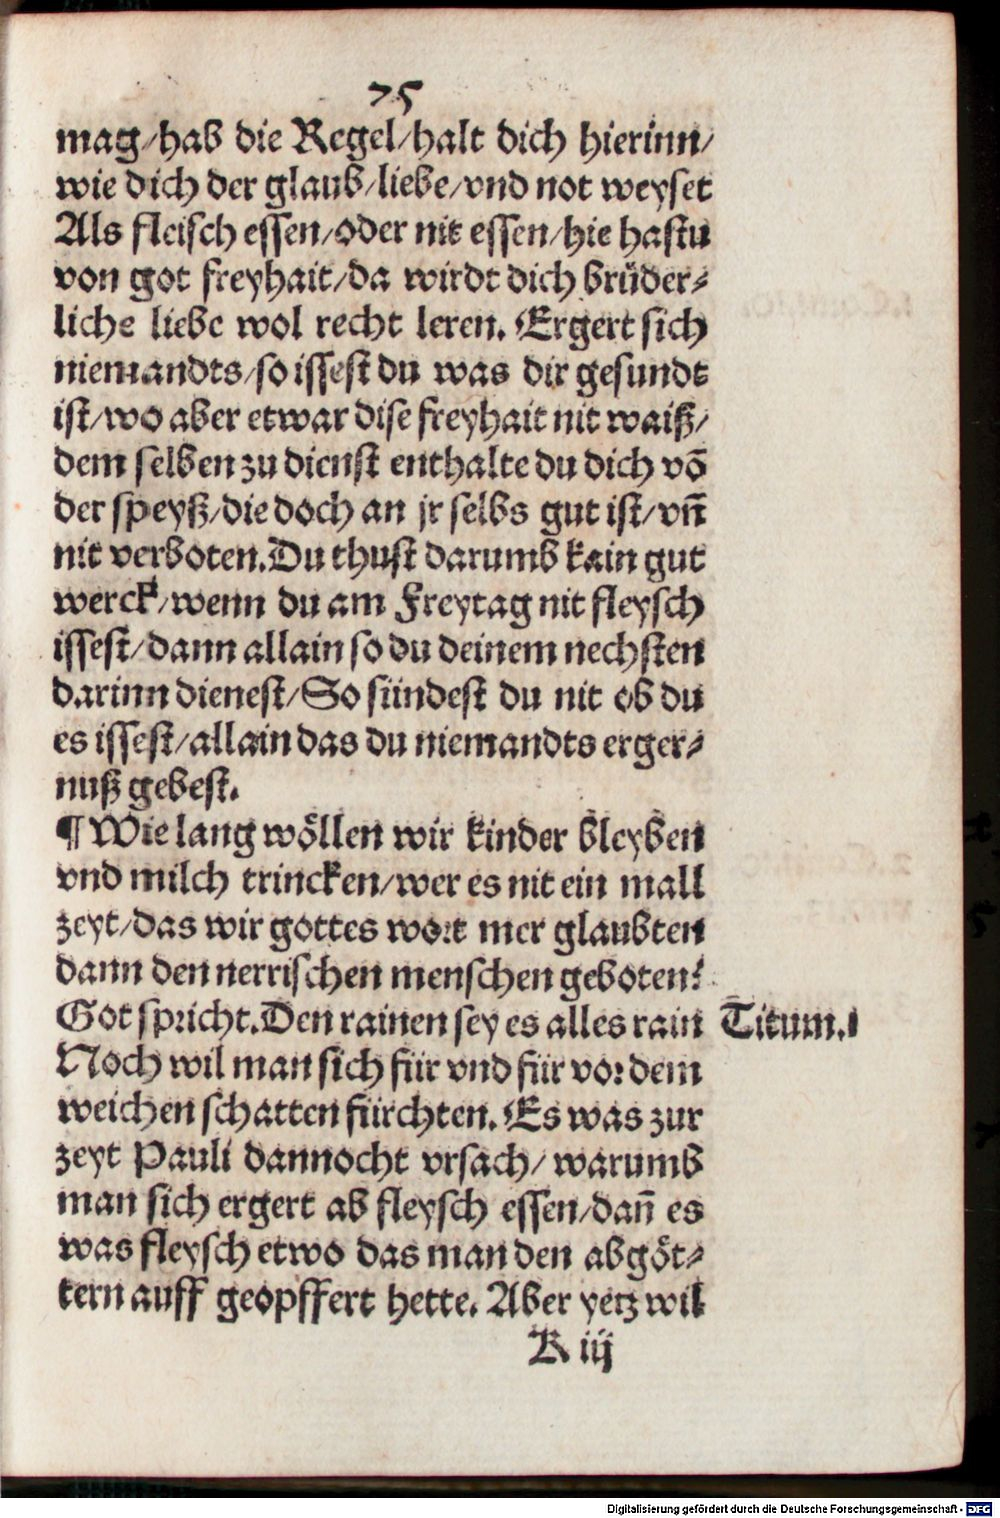 75
mag/hab die Regel/halt dich hierinn/
wie dich der glaub/liebe/vnd not weyset
Als fleisch essen/oder nit essen/hie hastu
von got freyhait/da wirdt dich brüder⸗
liche liebe wol recht leren. Ergert sich
niemandts/so issest du was dir gesundt
ist/wo aber etwar dise freyhait nit waiß/
dem selben zu dienst enthalte du dich võ
der speyß/die doch an jr selbs gut ist/vñ
nit verboten.Du thust darumb kain gut
werck/wenn du am Freytag nit fleysch
issest/dann allain so du deinem nechsten
darinn dienest/So sündest du nit ob du
es issest/allain das du niemandts erger⸗
nuß gebest.
¶ Wie lang wöllen wir kinder bleyben
vnd milch trincken/wer es nit ein mall
zeyt/das wir gottes wort mer glaubten
dann den nerrischen menschen geboten?
Got spricht.Den rainen sey es alles rain Titum.1
Noch wil man sich für vnd für vor dem
weichen schatten fürchten. Es was zur
zeyt Pauli dannocht vrsach/ warumb
man sich ergert ab fleysch essen/dañ es
was fleysch etwo das man den abgöt⸗
tern auff geopffert hette. Aber yetz wil
K iij
Digitalisierung gefördert durch die Deutsche Forschungsgemeinschaft - DFG